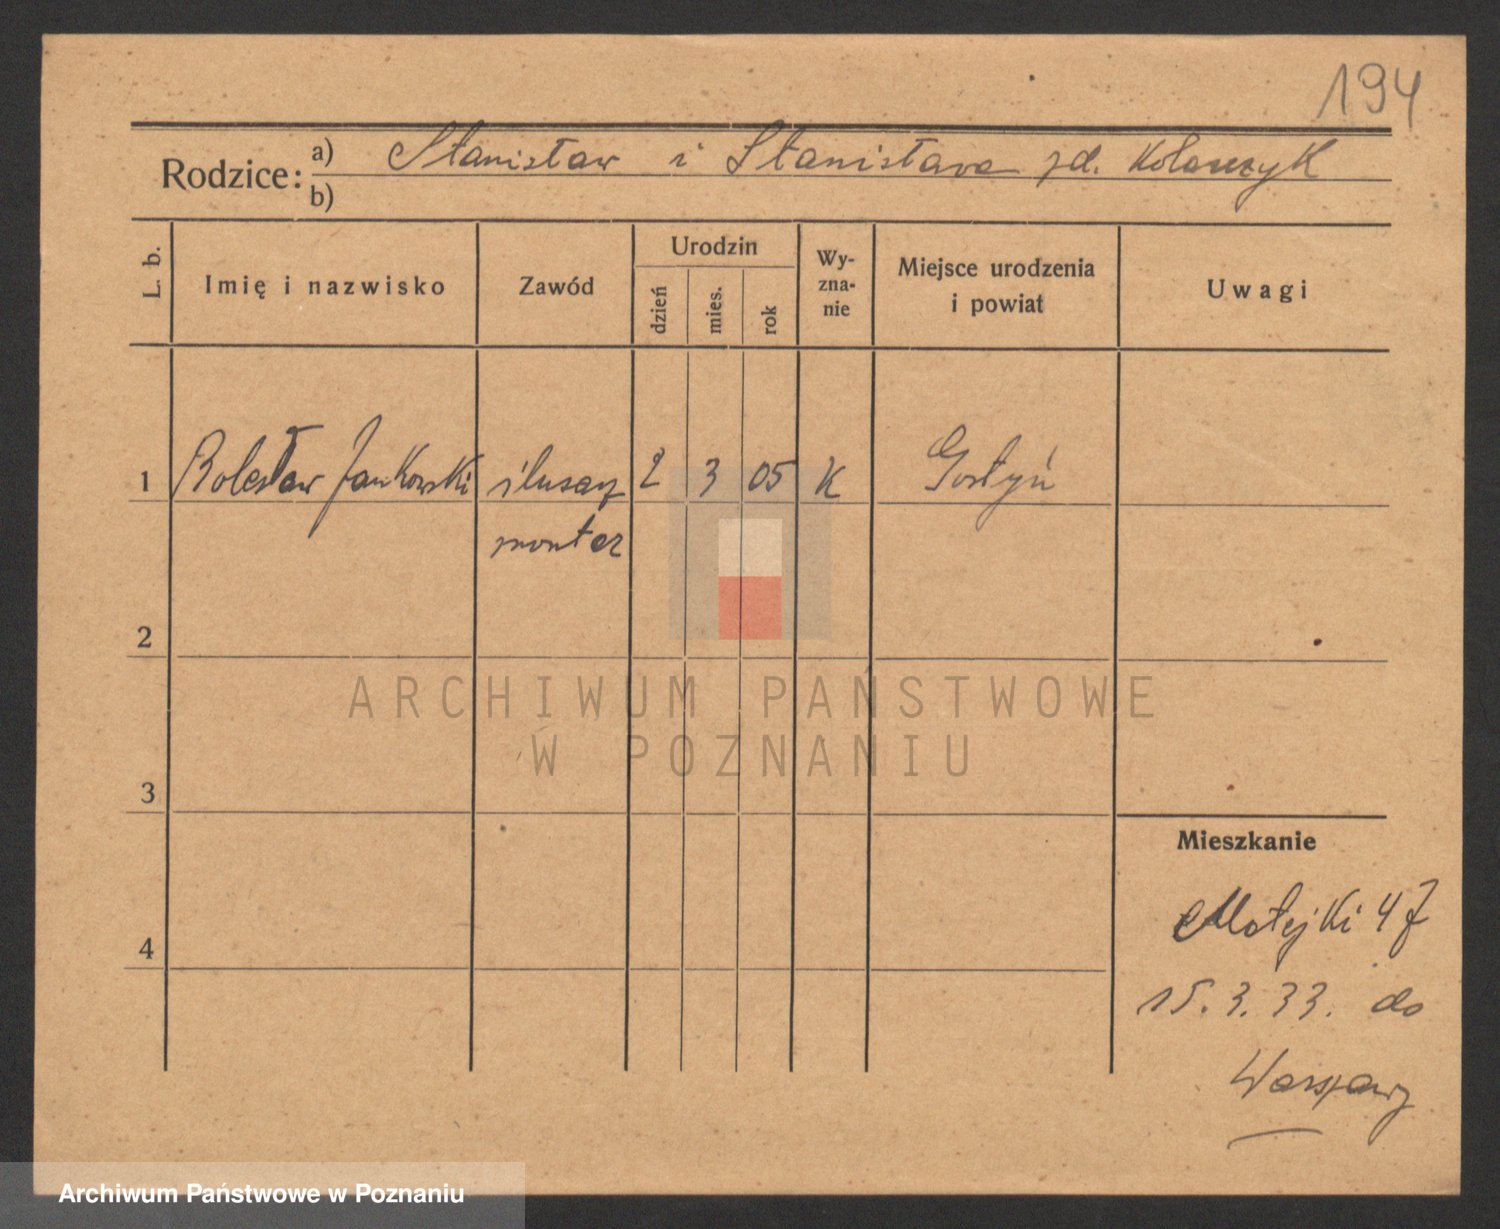 194
Rodzice: a) Stanisław i Stanisława zd. Kolarczyk
b)
L. b.
Imię i nazwisko
Zawód
Urodzin
dzień
mies.
rok
Wy-
zna-
nie
Miejsce urodzenia
i powiat
Uwagi
1 Bolesław Jankowski ślusarz 2 3 05 K Gostyń
monter
2
3
4
ARCHIWUM PAŃSTWOWE
W POZNANIU
Mieszkanie
Matejki 47
15.3.33. do
Warszawy
Archiwum Państwowe w Poznaniu